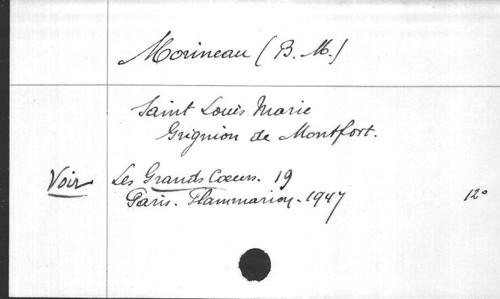 Morineau (B. M.)
Saint Louis Marie
Grignion de Montfort.
Voir Les Grands Cœurs. 19
Paris. Flammarion. 1947 12°